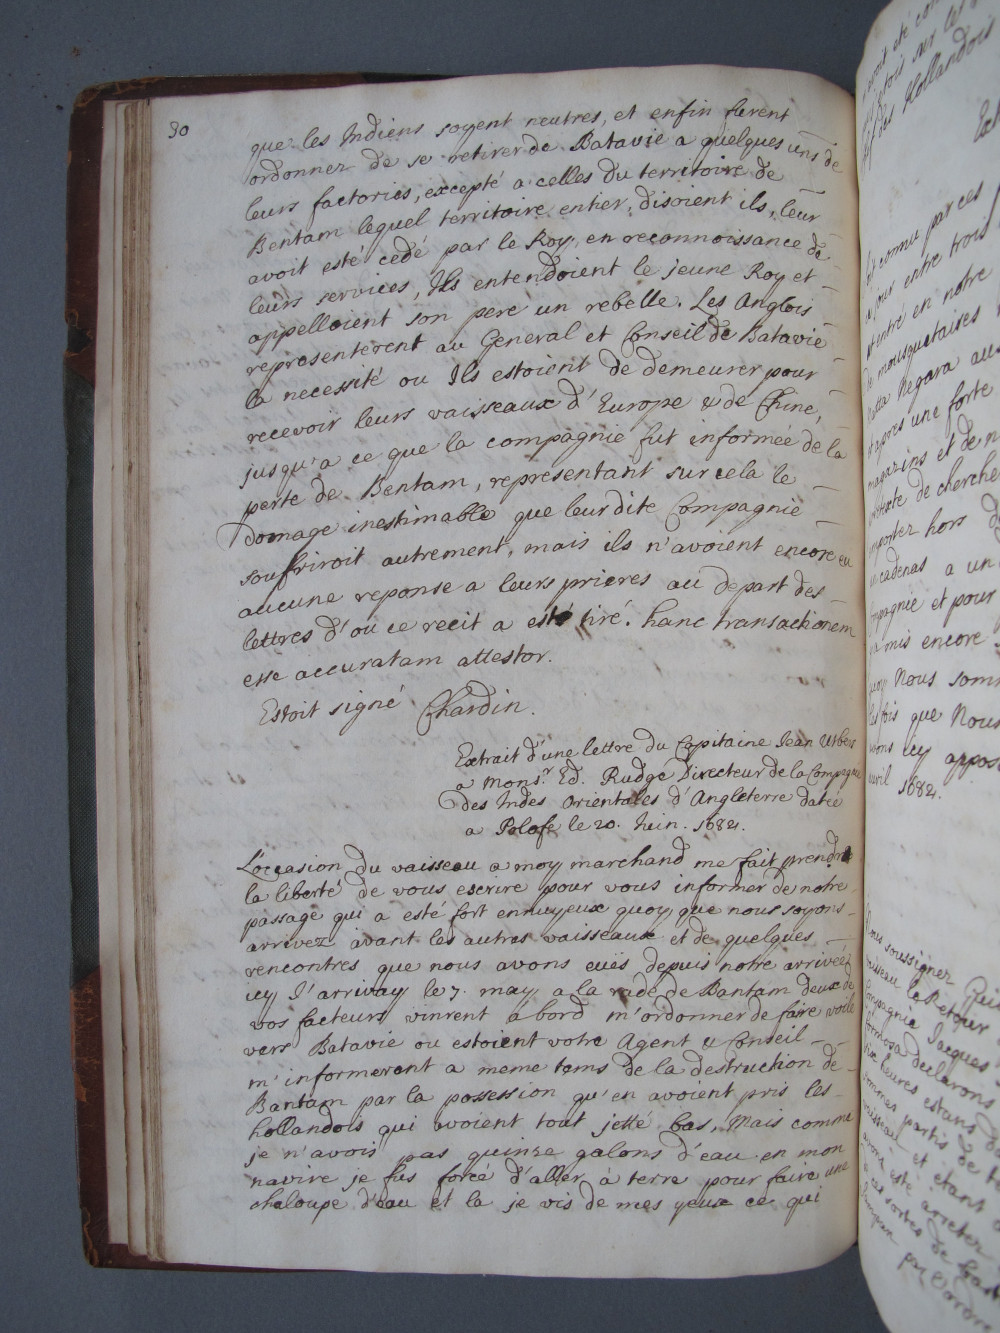 30
que les Indiens soyent neutres, et enfin furent
ordonnez de se retirer de Batavie a quelques uns de
leurs factories, excepté a celles du territoire de
Bentam lequel territoire entier, disoient ils, leur
avoit esté cedé par le Roy, en reconnoissance de
leurs services, Ils entendoient le jeune Roy et
appelloient son pere un rebelle. Les Anglois
representerent au General et Conseil de Batavie
la necessité ou Ils estoient de demeurer pour
recevoir leurs vaisseaux d'Europe & de Chine,
jusqu'a ce que la compagnie fut informée de la
perte de Bentam, representant sur cela le
domage inestimable que leur dite Compagnie
souffriroit autrement, mais ils n'avoient encore eu
aucune reponse a leurs prieres au depart des
lettres d'ou ce recit a esté tiré. hanc transactionem
esse accuratam attestor.
Estoit signé Chardin.
Extrait d'une lettre du Capitaine Jean
a Monsr. Ed. Rudge Directeur de la Compagnie
des Indes Orientales d'Angleterre daté
a le 20. Juin. 1682.
L'occasion du vaisseau a moy marchand me fait prendre
la liberté de vous escrire pour vous informer de notre
passage qui a esté fort ennuyeux quoy, que nous soyons
arrivez avant les autres vaisseaux et de quelques
rencontres que nous avons eues depuis notre arrivée
icy J'arrivay le 7. may a la rade de Bantam deux de
vos facteurs vinrent a bord m'ordonner de faire voile
vers Batavie ou estoient votre Agent & Conseil
m'informerent a meme tems de la destruction de
Bantam par la possession qu'en avoient pris les
hollandois qui avoient tout jetté bas, Mais comme
je n'avois pas quinze galons d'eau en mon
navire je fus forcé d'aller à terre pour faire une
chaloupe d'eau et la je vis de mes yeux ce qui
des Hollandois
connu par ces
jour entre trois
entré en notre
de mousquetaires
Negara
apres une forte
magazins et de
de cherche
hors
cadenas a un
et pour
mis encore
Nous
fois que Nous
icy
1682.
soussignez
vaisseau le Retour
Compagnie Jacques
formosa declarons
heures estans
sommes partis de
vaisseau et étant
esté arretez
sortes de
par